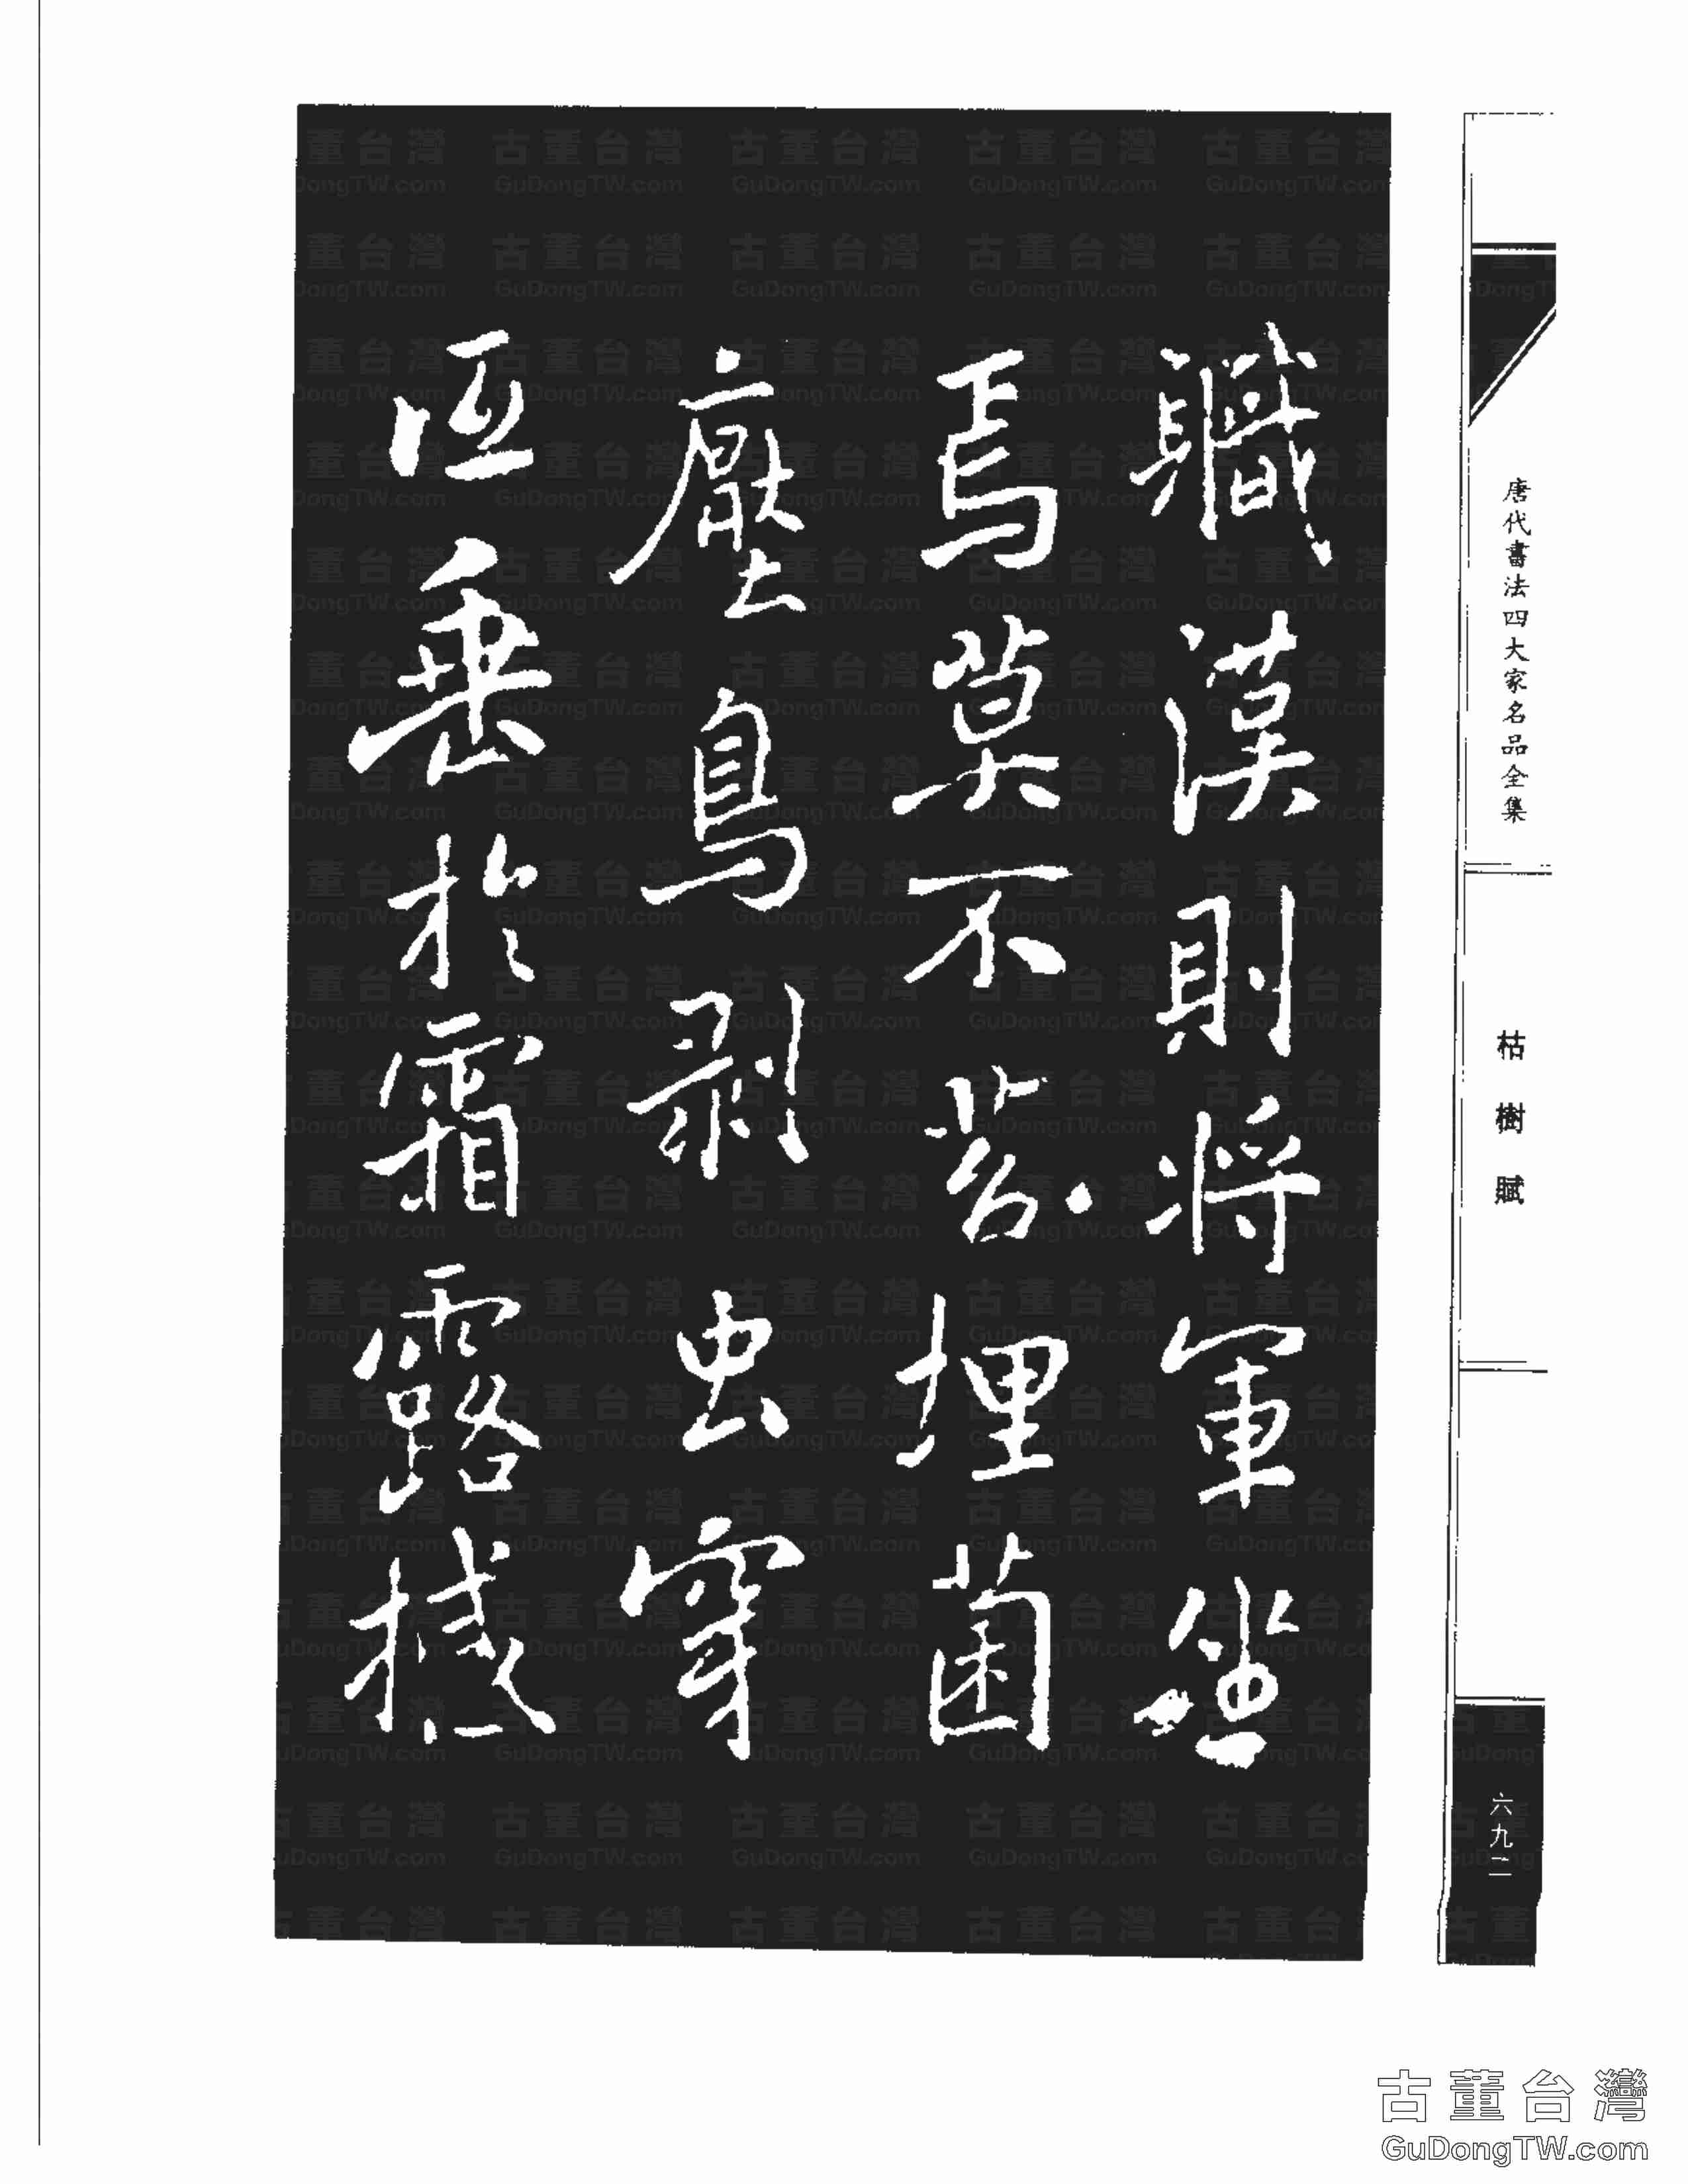 職漢則將軍坐
焉莫不苔埋菌
壓鳥剥虫穿
伍垂於霜露撼
唐代書法四大家名品全集
枯樹賦
六九二
古董台灣
GuDongTW.com